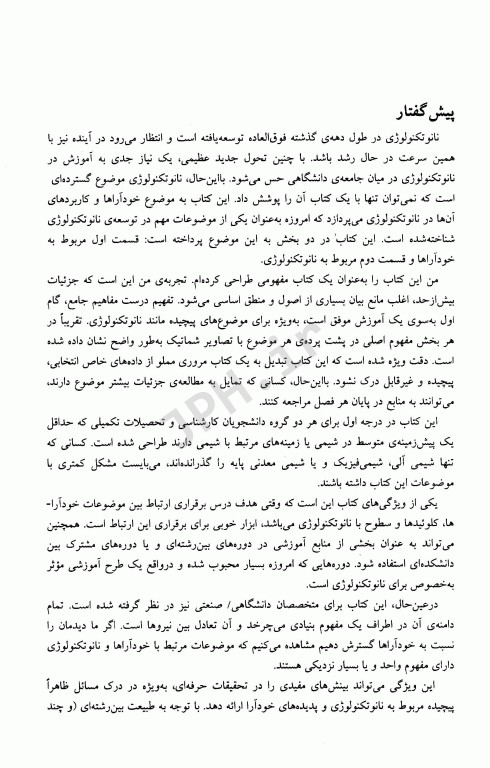 پیش‌گفتار
نانوتکنولوژی در طول دهه‌ی گذشته فوق‌العاده توسعه‌یافته است و انتظار می‌رود در آینده نیز با
همین سرعت در حال رشد باشد. با چنین تحول جدید عظیمی، یک نیاز جدی به آموزش در
نانوتکنولوژی در میان جامعه‌ی دانشگاهی حس می‌شود. بااین‌حال، نانوتکنولوژی موضوع گسترده‌ای
است که نمی‌توان تنها با یک کتاب آن را پوشش داد. این کتاب به موضوع خودآراها و کاربردهای
آن‌ها در نانوتکنولوژی می‌پردازد که امروزه به‌عنوان یکی از موضوعات مهم در توسعه‌ی نانوتکنولوژی
شناخته‌شده است. این کتاب در دو بخش به این موضوع پرداخته است: قسمت اول مربوط به
خودآراها و قسمت دوم مربوط به نانوتکنولوژی.
من این کتاب را به‌عنوان یک کتاب مفهومی طراحی کرده‌ام. تجربه‌ی من این است که جزئیات
بیش‌ازحد، اغلب مانع بیان بسیاری از اصول و منطق اساسی می‌شود. تفهیم درست مفاهیم جامع، گام
اول به‌سوی یک آموزش موفق است، به‌ویژه برای موضوع‌های پیچیده مانند نانوتکنولوژی. تقریباً در
هر بخش مفهوم اصلی در پشت پرده‌ی هر موضوع با تصاویر شماتیک به‌طور واضح نشان داده شده
است. دقت ویژه شده است که این کتاب تبدیل به یک کتاب مروری مملو از داده‌های خاص انتخابی،
پیچیده و غیرقابل درک نشود. بااین‌حال، کسانی که تمایل به مطالعه‌ی جزئیات بیشتر موضوع دارند،
می‌توانند به منابع در پایان هر فصل مراجعه کنند.
این کتاب در درجه اول برای هر دو گروه دانشجویان کارشناسی و تحصیلات تکمیلی که حداقل
یک پیش‌زمینه‌ی متوسط در شیمی یا زمینه‌های مرتبط با شیمی دارند طراحی شده است. کسانی که
تنها شیمی آلی، شیمی‌فیزیک و یا شیمی معدنی پایه را گذرانده‌اند، می‌بایست مشکل کمتری با
موضوعات این کتاب داشته باشند.
یکی از ویژگی‌های کتاب این است که وقتی هدف درس برقراری ارتباط بین موضوعات خودآرا-
ها، کلوئیدها و سطوح با نانوتکنولوژی می‌باشد، ابزار خوبی برای برقراری این ارتباط است. همچنین
می‌تواند به عنوان بخشی از منابع آموزشی در دوره‌های بین‌رشته‌ای و یا دوره‌های مشترک بین
دانشکده‌ای استفاده شود. دوره‌هایی که امروزه بسیار محبوب شده و درواقع یک طرح آموزشی مؤثر
به‌خصوص برای نانوتکنولوژی است.
درعین‌حال، این کتاب برای متخصصان دانشگاهی/ صنعتی نیز در نظر گرفته شده است. تمام
دامنه‌ی آن در اطراف یک مفهوم بنیادی می‌چرخد و آن تعادل بین نیروها است. اگر ما دیدمان را
نسبت به خودآراها گسترش دهیم مشاهده می‌کنیم که موضوعات مرتبط با خودآراها و نانوتکنولوژی
دارای مفهوم واحد و یا بسیار نزدیکی هستند.
این ویژگی می‌تواند بینش‌های مفیدی را در تحقیقات حرفه‌ای، به‌ویژه در درک مسائل ظاهراً
پیچیده مربوط به نانوتکنولوژی و پدیده‌های خودآرا ارائه دهد. با توجه به طبیعت بین‌رشته‌ای (و چند
JPH.ir